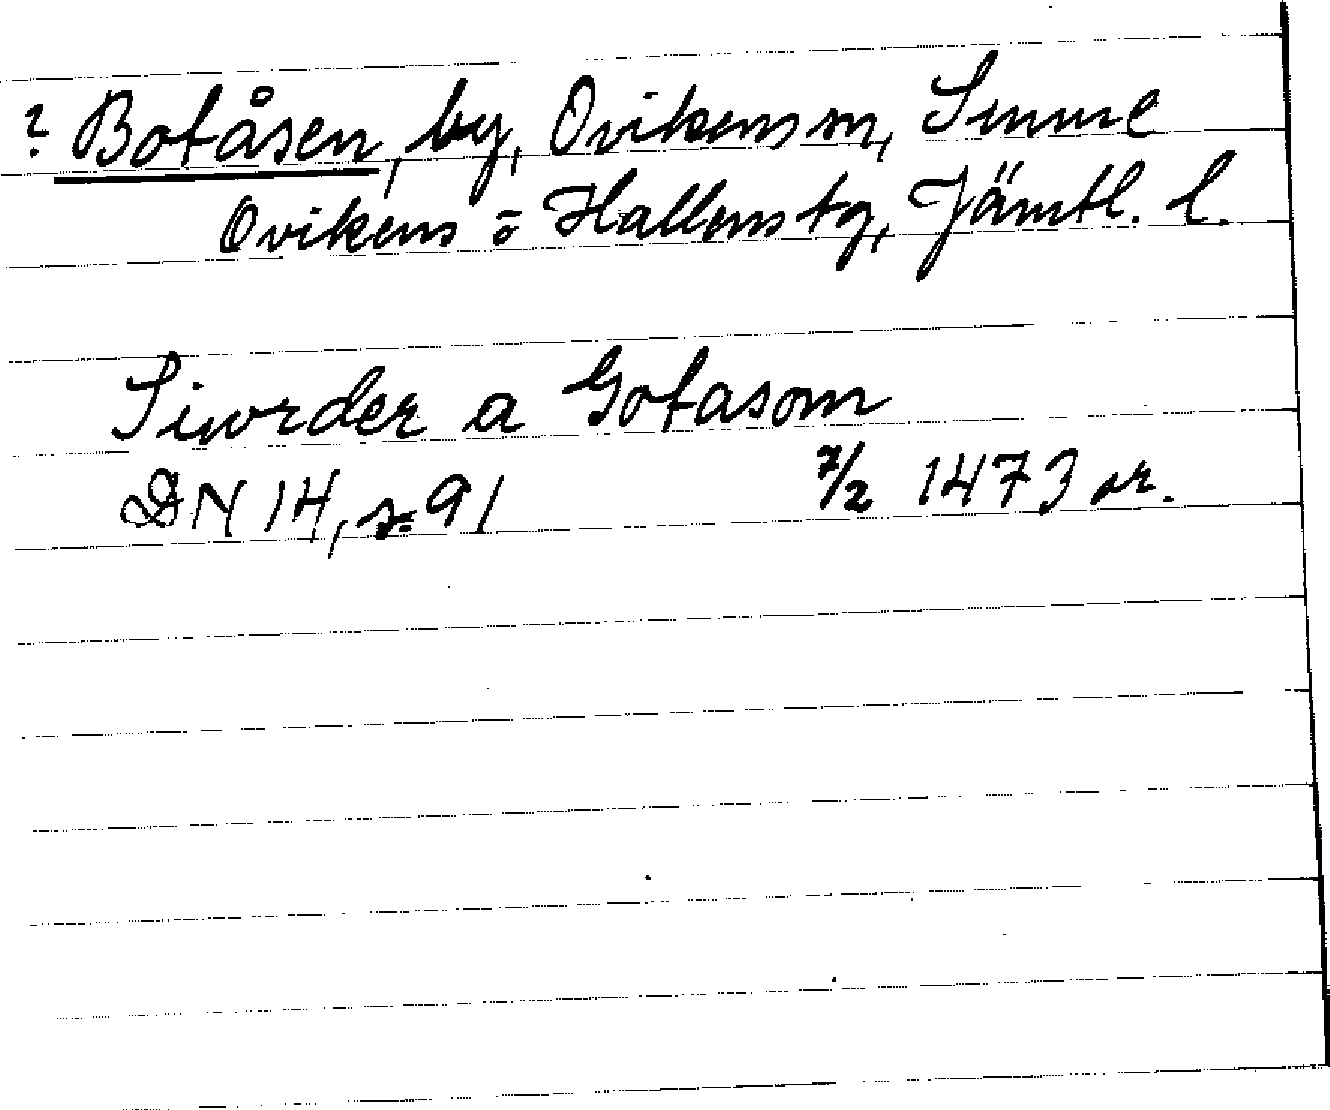 ? Botåsen, by, Ovikens sn,
Ovikens o Hallens tg, Jämtl. l.
Siwrder a Gotasom
DN 14, s. 91 7/2 1473 or.